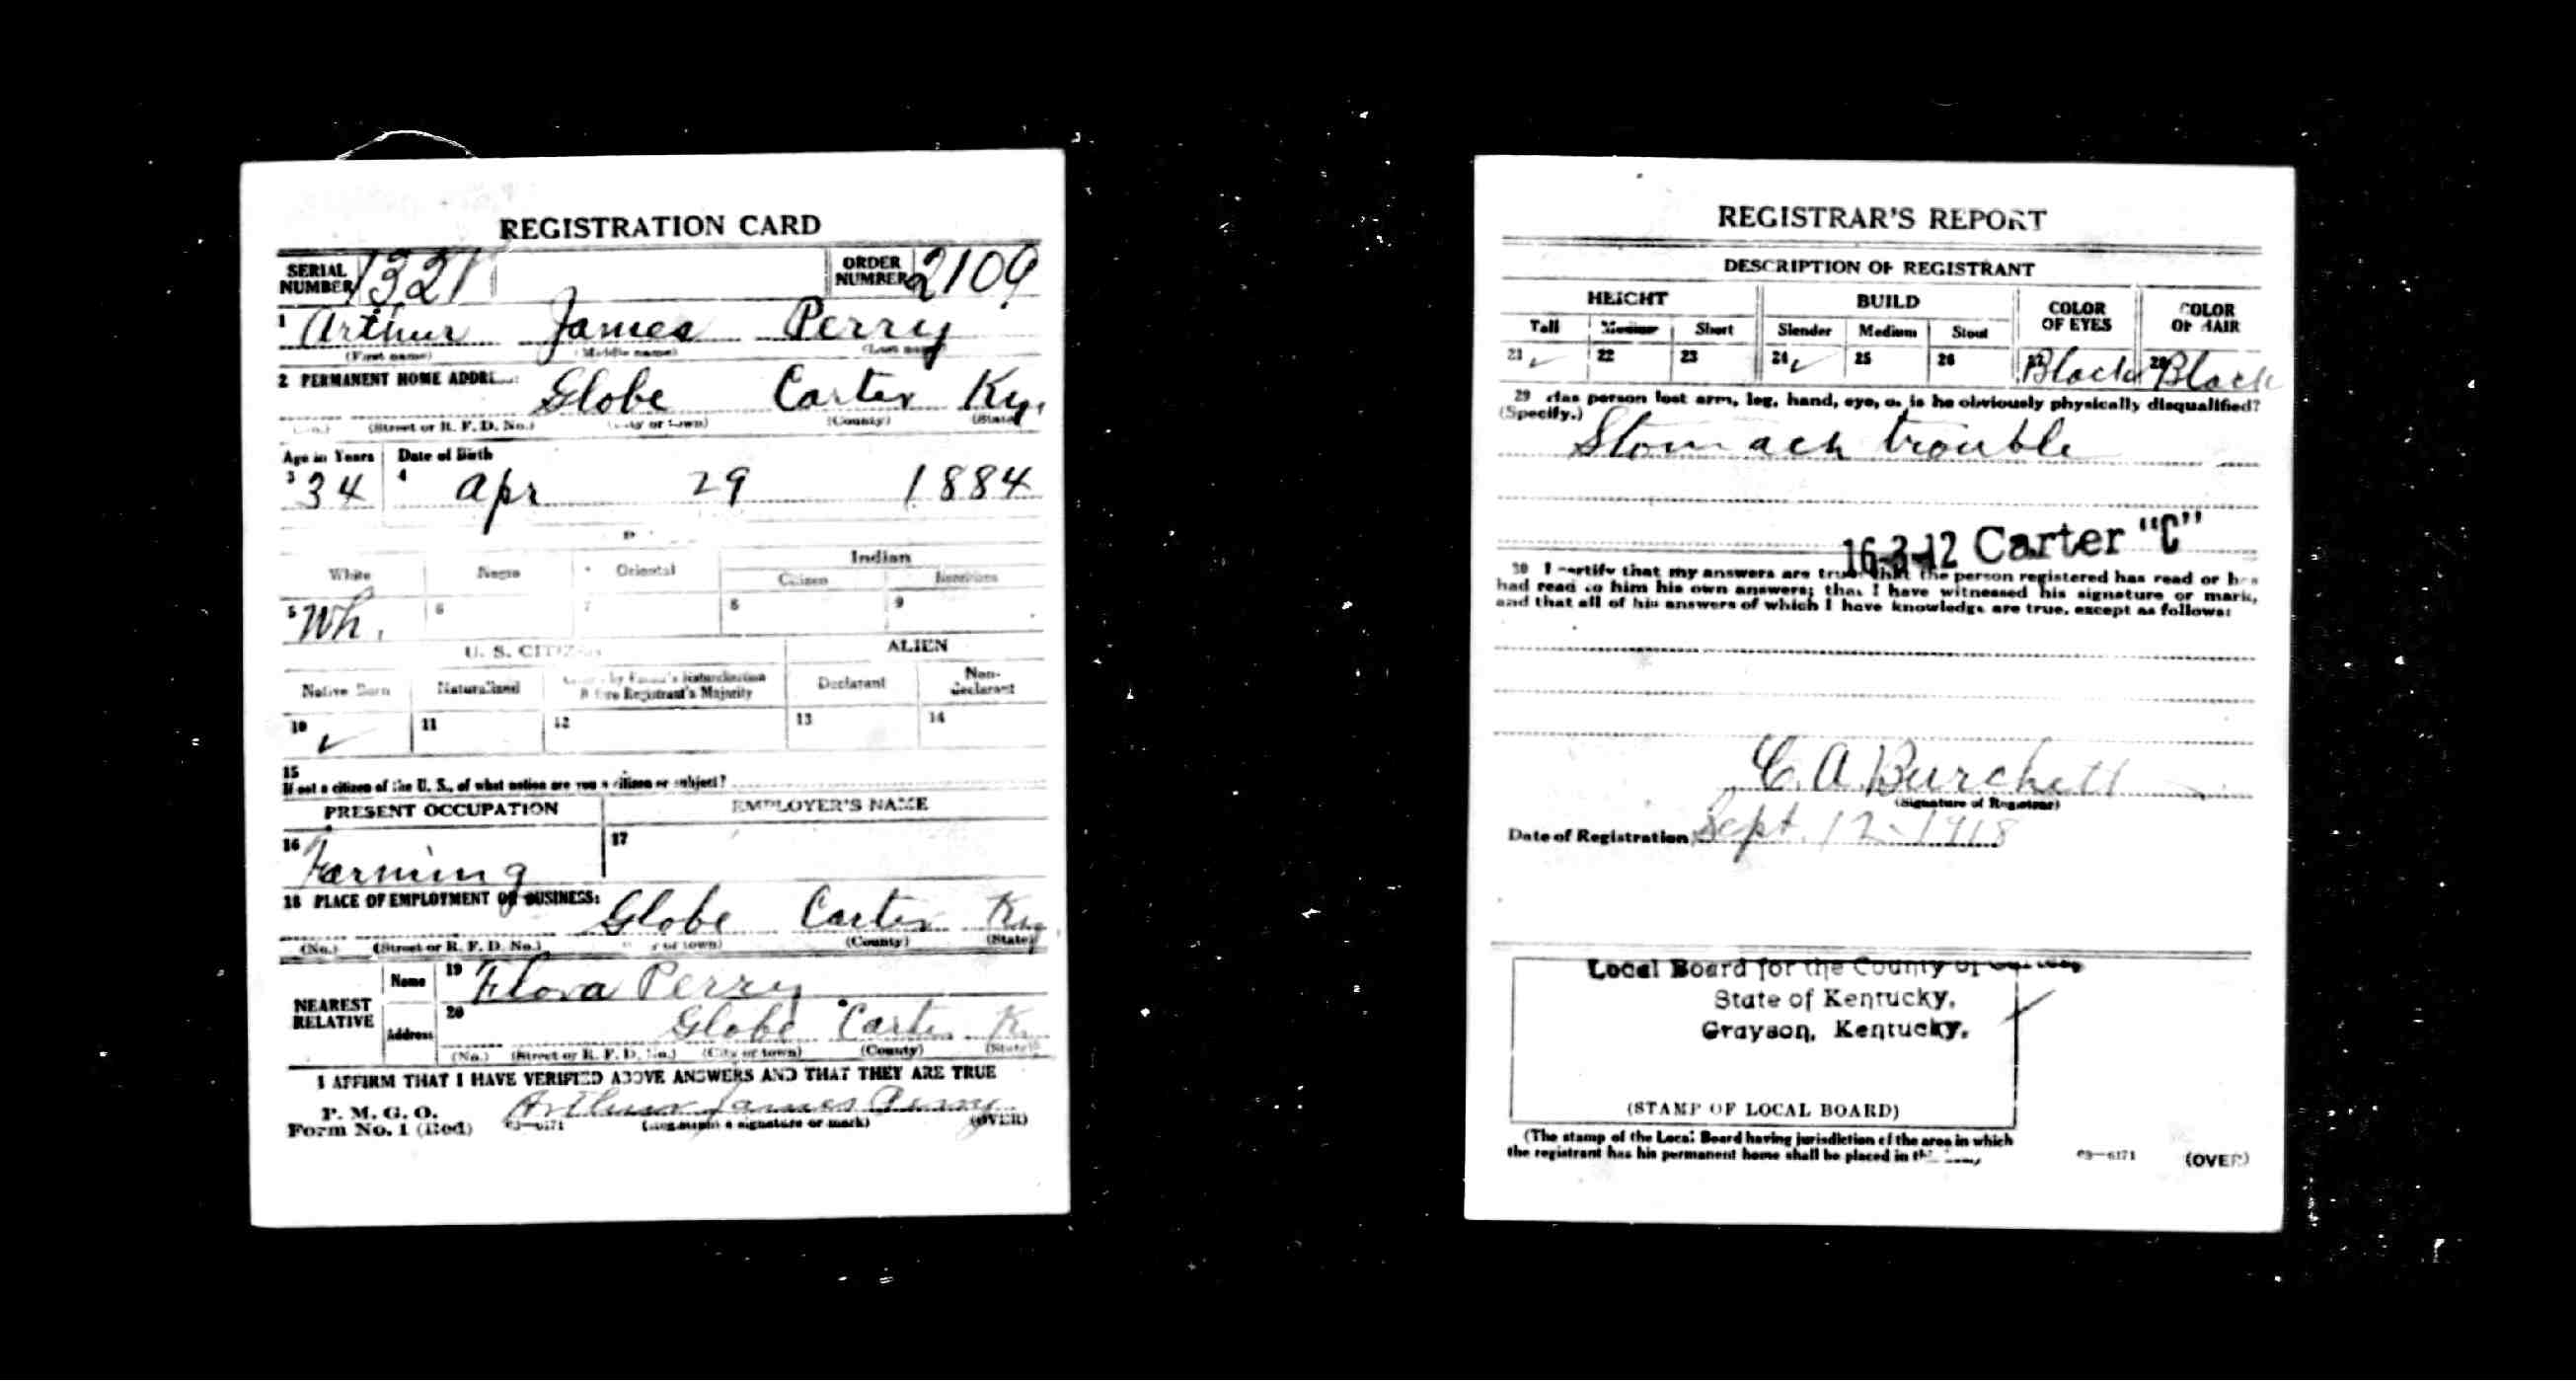 REGISTRATION CARD
SERIAL NUMBER 1321 ORDER NUMBER 2109
1 Arthur James Perry
(First name) (Middle name) (Last name)
2 PERMANENT HOME ADDRESS:
Globe Carter Ky.
(No.) (Street or R. F. D. No.) (City or town) (County) (State)
Age in Years Date of Birth
3 34 4 Apr 29 1884
Indian
White Negro Oriental Citizen
5 Wh. 6 7 8 9
U. S. CITIZEN ALIEN
Native Born Naturalized Citizen by Father's Naturalization Before Registrant's Majority Declarant Non-declarant
10 ✓ 11 12 13 14
15
If not a citizen of the U. S., of what nation are you a citizen or subject?
PRESENT OCCUPATION EMPLOYER'S NAME
16 Farming 17
18 PLACE OF EMPLOYMENT OR BUSINESS:
Globe Carter Ky
(No.) (Street or R. F. D. No.) (City or town) (County) (State)
NEAREST RELATIVE
Name 19 Flora Perry
Address 20 Globe Carter K
(No.) (Street or R. F. D. No.) (City or town) (County) (State)
I AFFIRM THAT I HAVE VERIFIED ABOVE ANSWERS AND THAT THEY ARE TRUE
P. M. G. O.
Form No. 1 (Red) 03—6171 Arthur James Perry
(Registrant's signature or mark) (OVER)
REGISTRAR'S REPORT
DESCRIPTION OF REGISTRANT
HEIGHT BUILD COLOR OF EYES COLOR OF HAIR
Tall Medium Short Slender Medium Stout
21 ✓ 22 23 24 ✓ 25 26 27 Black 28 Black
29 Has person lost arm, leg, hand, eye, or is he obviously physically disqualified?
(Specify.)
Stomach trouble
16-3-12 Carter "C"
30 I certify that my answers are true; that the person registered has read or has
had read to him his own answers; that I have witnessed his signature or mark,
and that all of his answers of which I have knowledge are true, except as follows:
C. A. Burchett
(Signature of Registrar)
Date of Registration Sept. 12-1918
Local Board for the County of
State of Kentucky,
Grayson, Kentucky.
(STAMP OF LOCAL BOARD)
(The stamp of the Local Board having jurisdiction of the area in which
the registrant has his permanent home shall be placed in this
03—6171 (OVER)